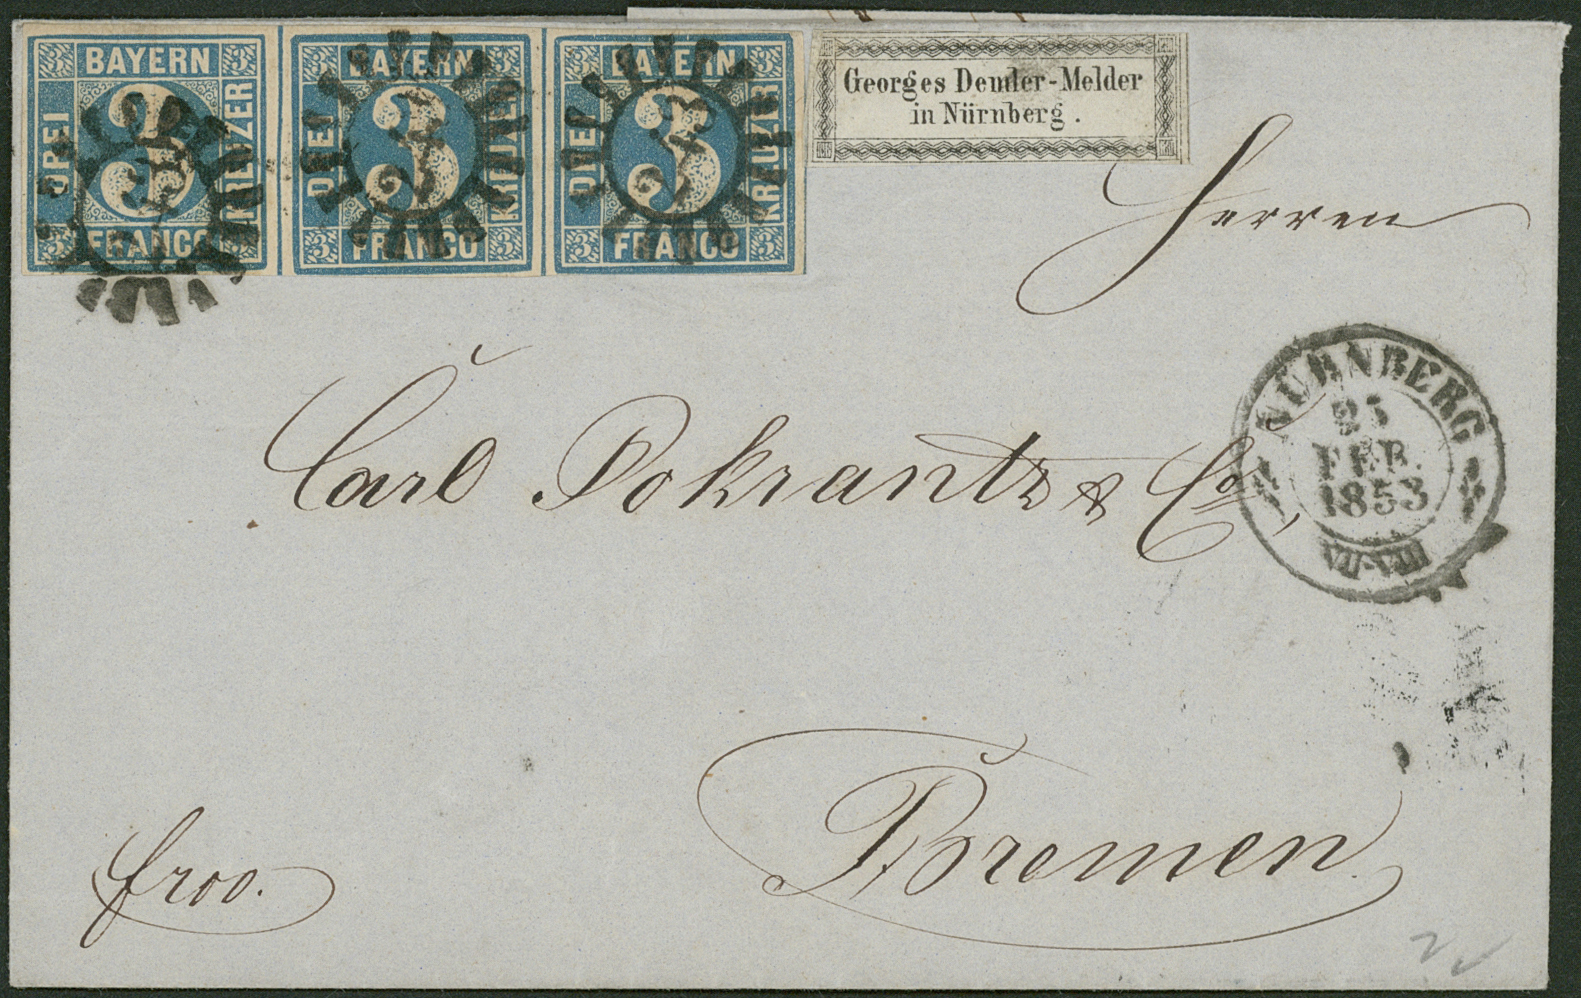 3 BAYERN 3
DREI
3
KREUZER
3 FRANCO 3
243
3 BAYERN 3
DREI
3
KREUZER
3 FRANCO 3
243
3 BAYERN 3
DREI
3
KREUZER
3 FRANCO 3
243
Georges Demler-Melder
in Nürnberg.
Herren
Carl Pokrantz & Co,
NÜRNBERG
25
FEB.
1853
Bremen
froo.